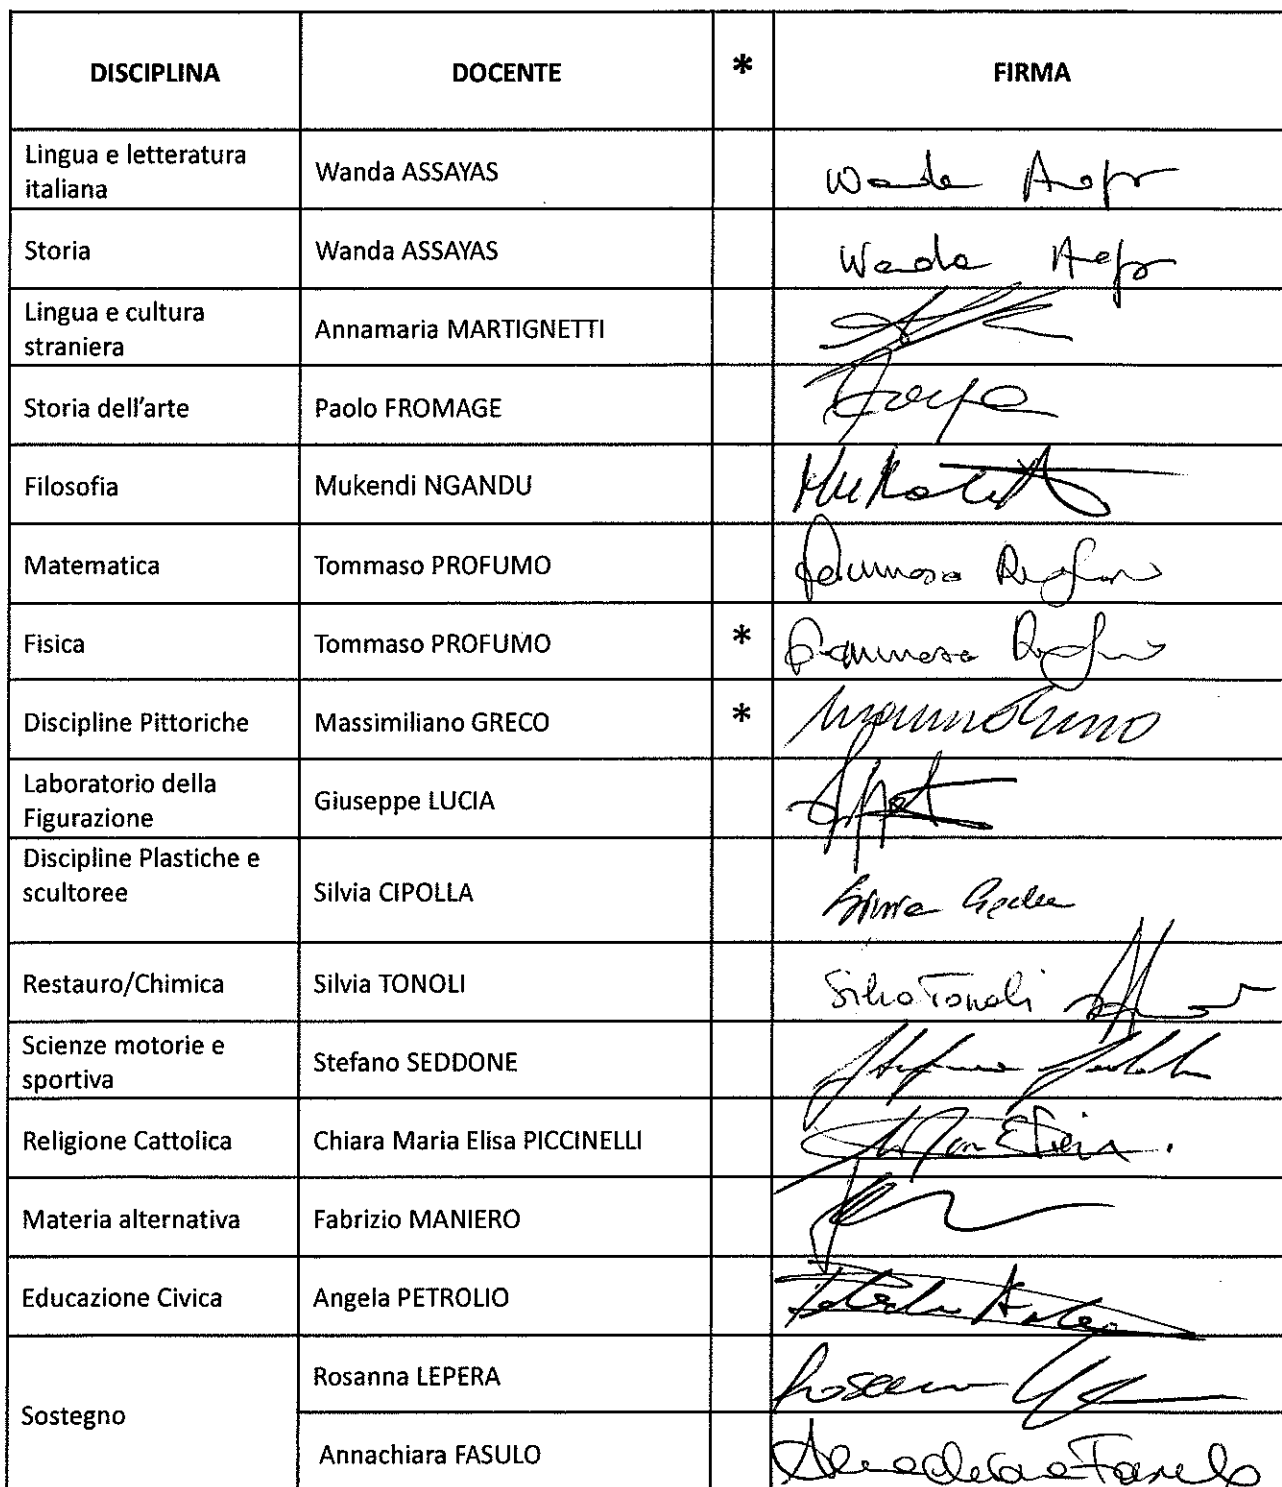 DISCIPLINA DOCENTE * FIRMA
Lingua e letteratura
italiana
Wanda ASSAYAS
Storia Wanda ASSAYAS
Lingua e cultura
straniera
Annamaria MARTIGNETTI
Storia dell'arte Paolo FROMAGE
Filosofia Mukendi NGANDU
Matematica Tommaso PROFUMO
Fisica Tommaso PROFUMO *
Discipline Pittoriche Massimiliano GRECO *
Laboratorio della
Figurazione
Giuseppe LUCIA
Discipline Plastiche e
scultoree
Silvia CIPOLLA
Restauro/Chimica Silvia TONOLI Silvia Tonoli
Scienze motorie e
sportiva
Stefano SEDDONE
Religione Cattolica Chiara Maria Elisa PICCINELLI
Materia alternativa Fabrizio MANIERO
Educazione Civica Angela PETROLIO
Sostegno
Rosanna LEPERA
Annachiara FASULO Annachiara Fasulo